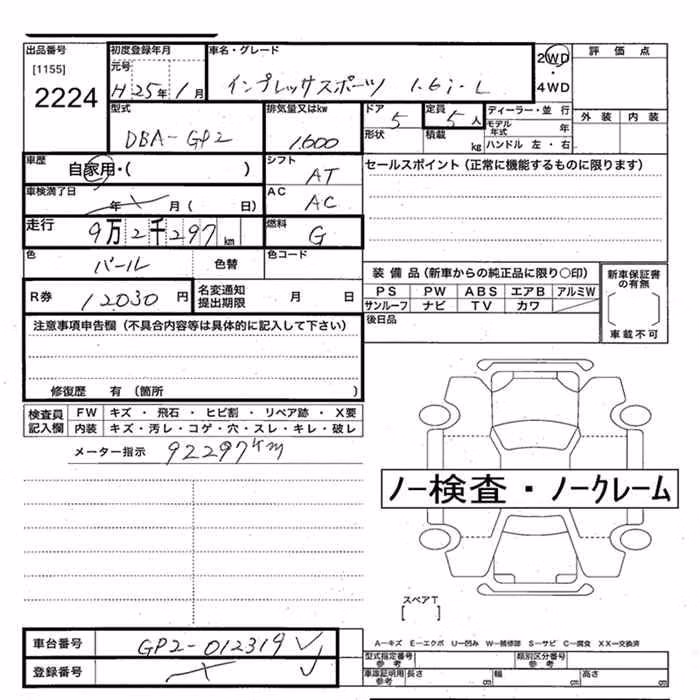 出品番号 初度登録年月 車名・グレード 2WD ・ 4WD 評価点
[1155] 元号
2224 H 25年 1月 インプレッサスポーツ 1.6i-L
外装 内装
型式 排気量又はkw ドア 定員 ディーラー・並行
DBA-GP2 1,600 5 5人 モデル年式 年
形状 積載 kg ハンドル 左・右
車歴 自家用・( ) シフト AT セールスポイント(正常に機能するものに限ります)
車検満了日 年 月( 日) AC AC
走行 9万2千297km 燃料 G
色 パール 色替 色コード
装備品(新車からの純正品に限り○印) 新車保証書の有無
R券 12030円 名変通知提出期限 月 日 PS PW ABS エアB アルミW
サンルーフ ナビ TV カワ
注意事項申告欄(不具合内容等は具体的に記入して下さい) 後日品 車載不可
修復歴 有(箇所 )
検査員記入欄 FW キズ・飛石・ヒビ割・リペア跡・X要
内装 キズ・汚レ・コゲ・穴・スレ・キレ・破レ
メーター指示 92297km
ノー検査・ノークレーム
スペアT
[ ]
車台番号 GP2-012319
登録番号
A—キズ E—エクボ U—凹み W—補修跡 S—サビ C—腐食 XX—交換済
型式指定番号 参考 類別区分番号 参考
車庫証明用 参考 長さ 幅 高さ